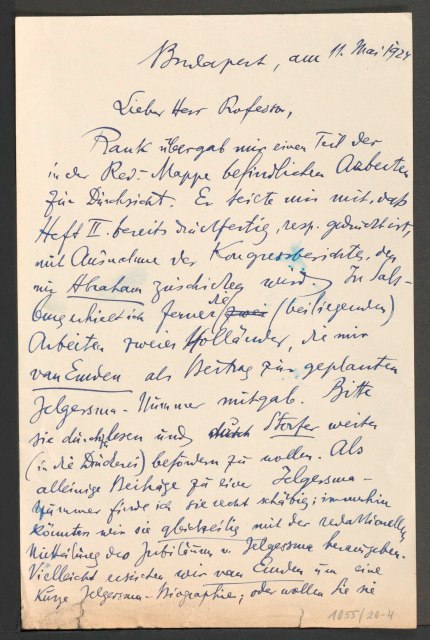 Budapest, am 11. Mai 1924
Lieber Herr Professor,
Rank übergab mir einen Teil der
in der Red.-Mappe befindlichen Arbeiten
zur Durchsicht. Er teilte mir mit, daß
Heft II. bereits druckfertig, resp. gedruckt ist,
mit Ausnahme der Kongressberichte, den
mir Abraham zuschicken wird. In Salz-
burg erhielt ich ferner die zwei (beiliegenden)
Arbeiten zweier Holländer, die mir
van Emden als Beitrag zur geplanten
Jelgersma-Nummer mitgab. Bitte
sie durchzulesen und durch Storfer weiter
(in die Druckerei) befördern zu wollen. Als
alleinige Beiträge zu einer Jelgersma-
Nummer finde ich sie recht schäbig; immerhin
könnten wir sie gleichzeitig mit der redaktionellen
Mitteilung des Jubiläum v. Jelgersma herausgeben.
Vielleicht ersuchen wir van Emden um eine
kurze Jelgersma-Biographie; oder wollen Sie sie
1055/20-4